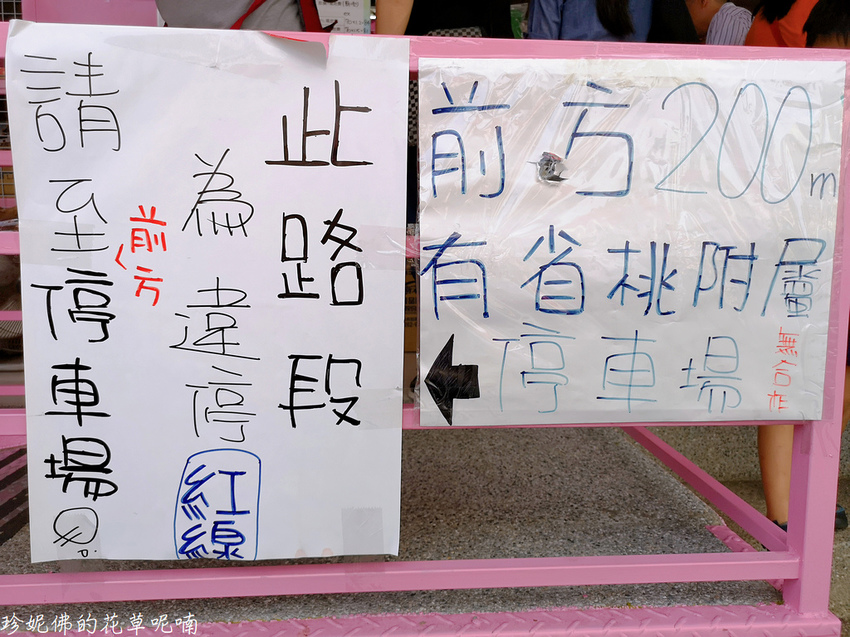 此路段
為違停
紅線
請至停車場
前方
前方200m
有省桃附層
停車場
珍妮佛的花草呢喃